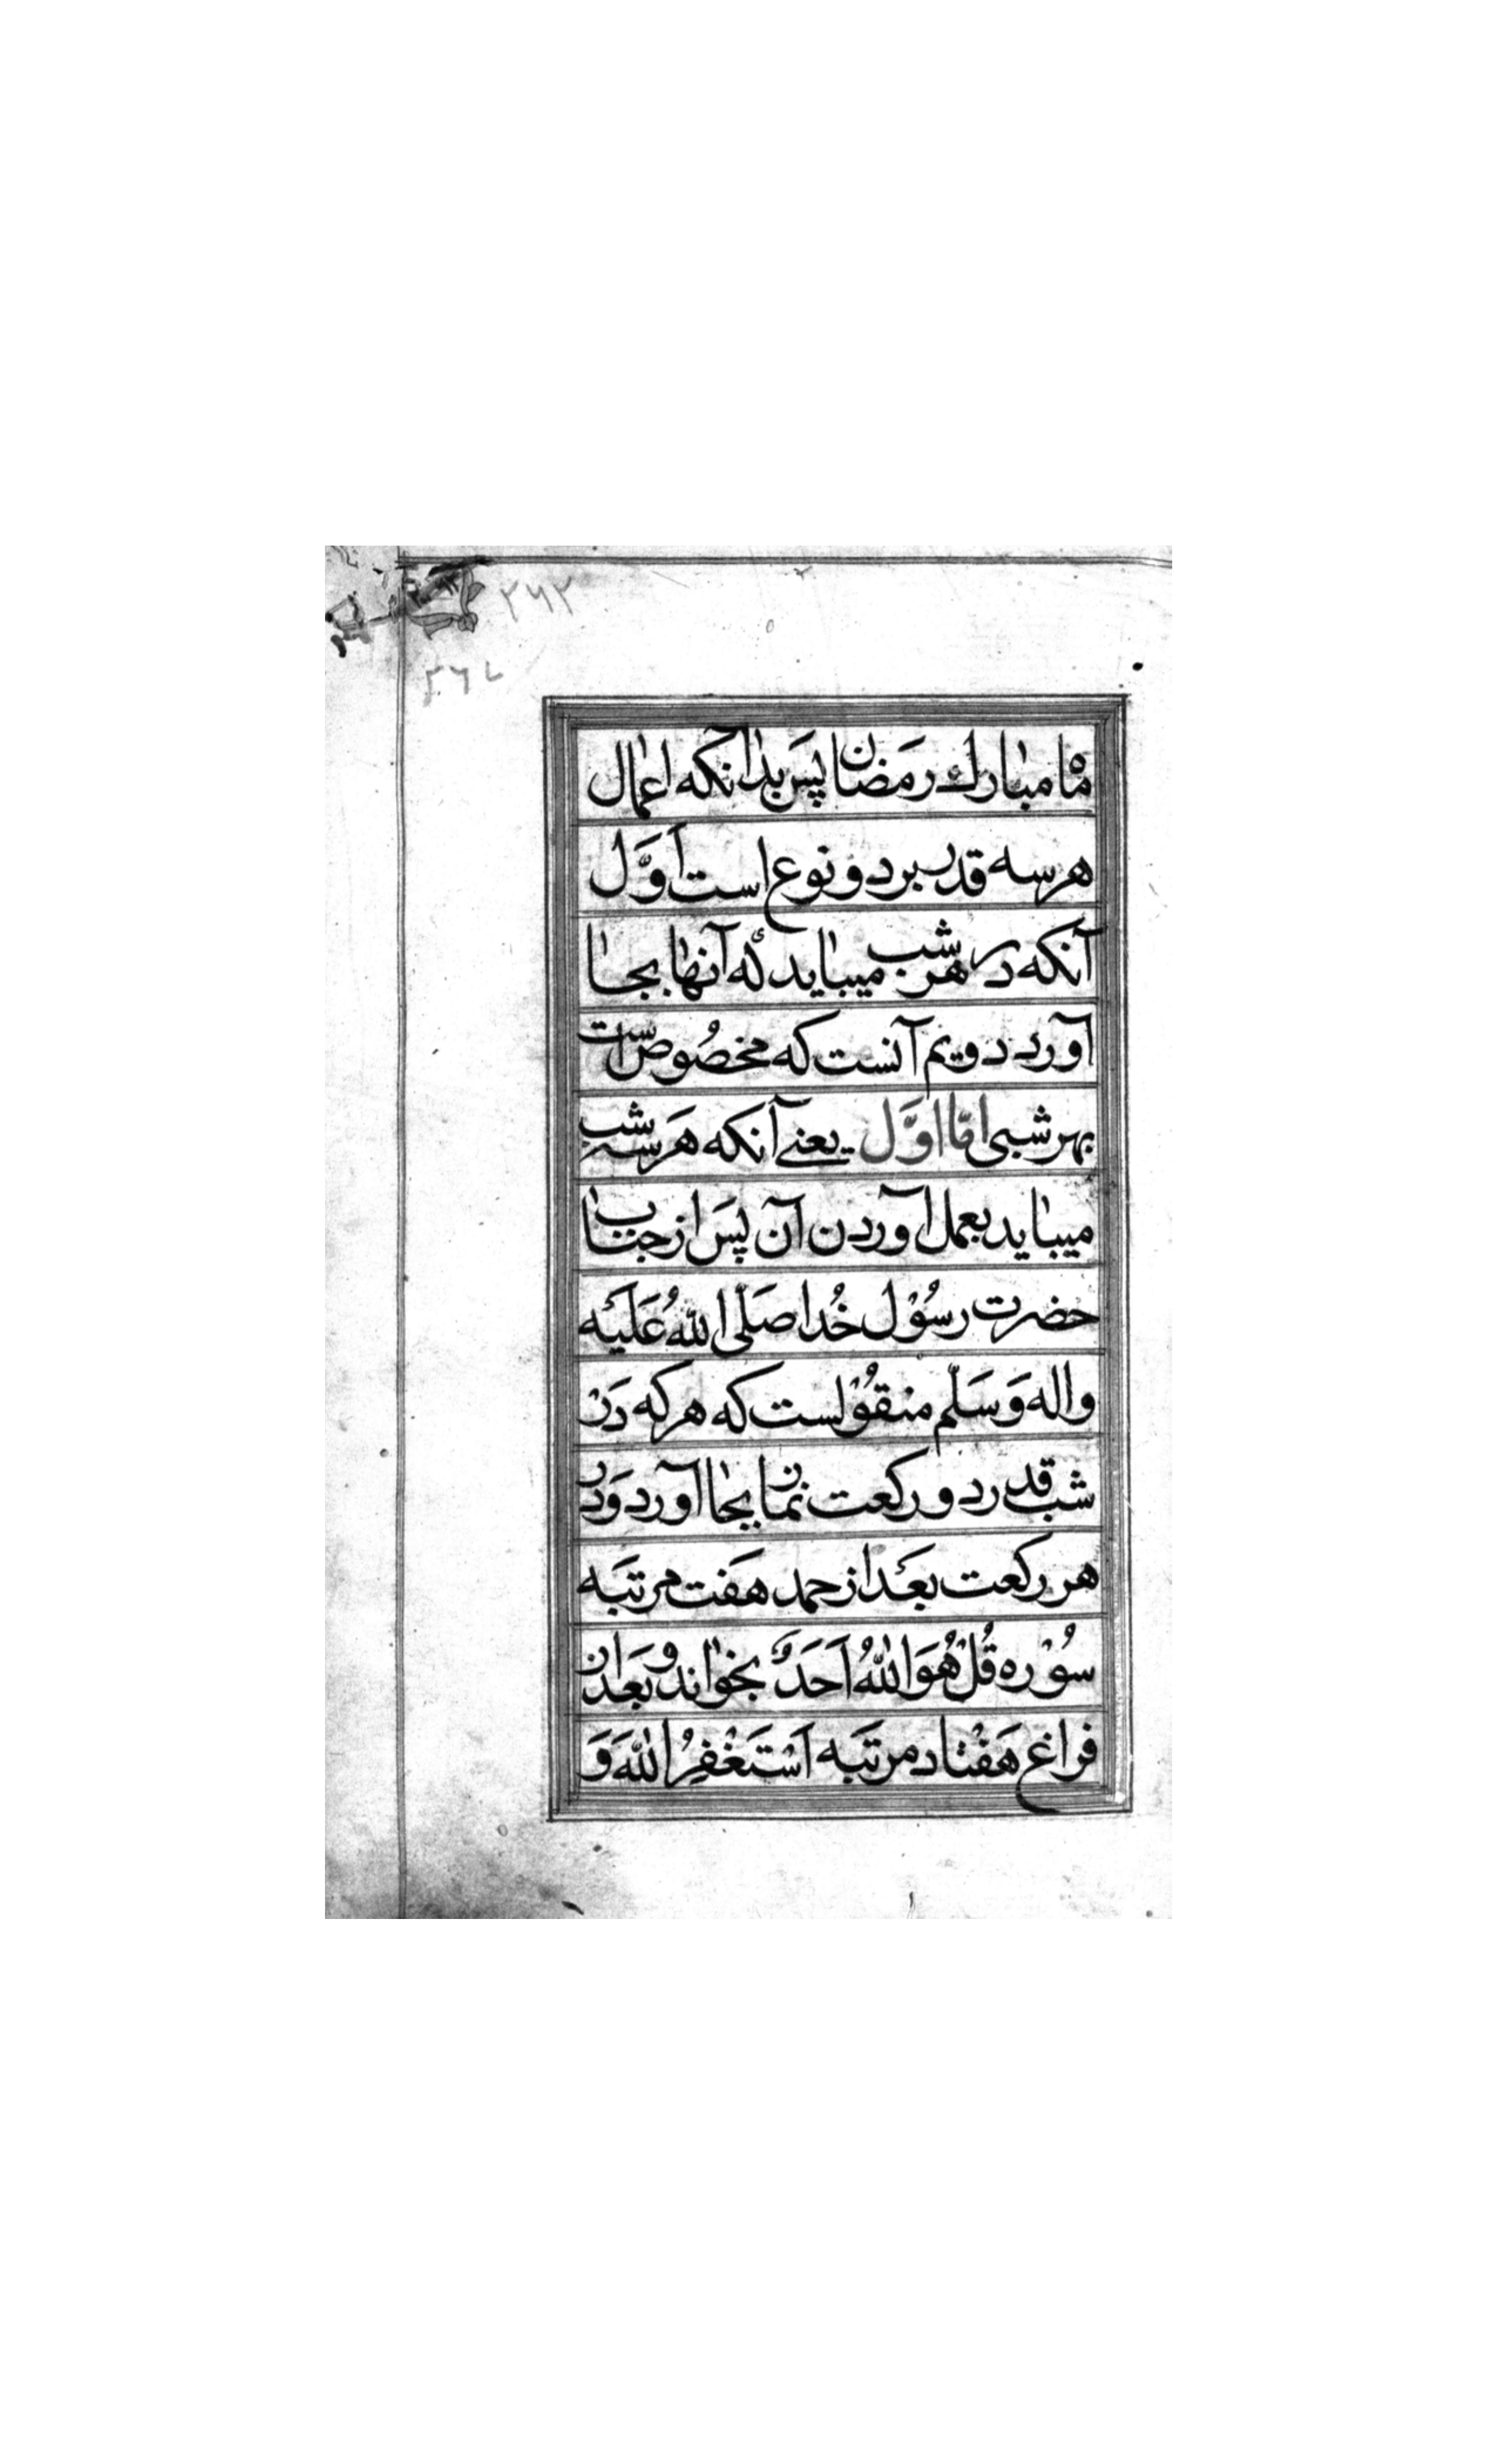 ۲۶۲
ماه مبارك رمضان پس بدانكه اعمال
هر سه قدر بر دو نوع است اَوَّل
آنكه در هر شب ميبايد كه آنها بجا
آورد دويم آنست كه مخصُوص است
بهر شبى امّا اوَّل يعنے آنكه هَر سه شب
ميبايد بعمل آوردن آن پَس از جناب
حضرت رسُوْل خُدا صَلّى اللهُ عَلَيْه
واله وَسَلّم منقُوْلست كه هر كه دَرْ
شب قدر دو ركعت نماز بجا آورد وَدر
هر ركعت بعَْد از حمد هَفت مرتبَه
سُوْره قُلْ هُوَ اللهُ اَحَدٌ بخواند و بعَد از
فراغ هَفْتاد مرتَبَه اَسْتَغْفِرُ اللهَ وَ